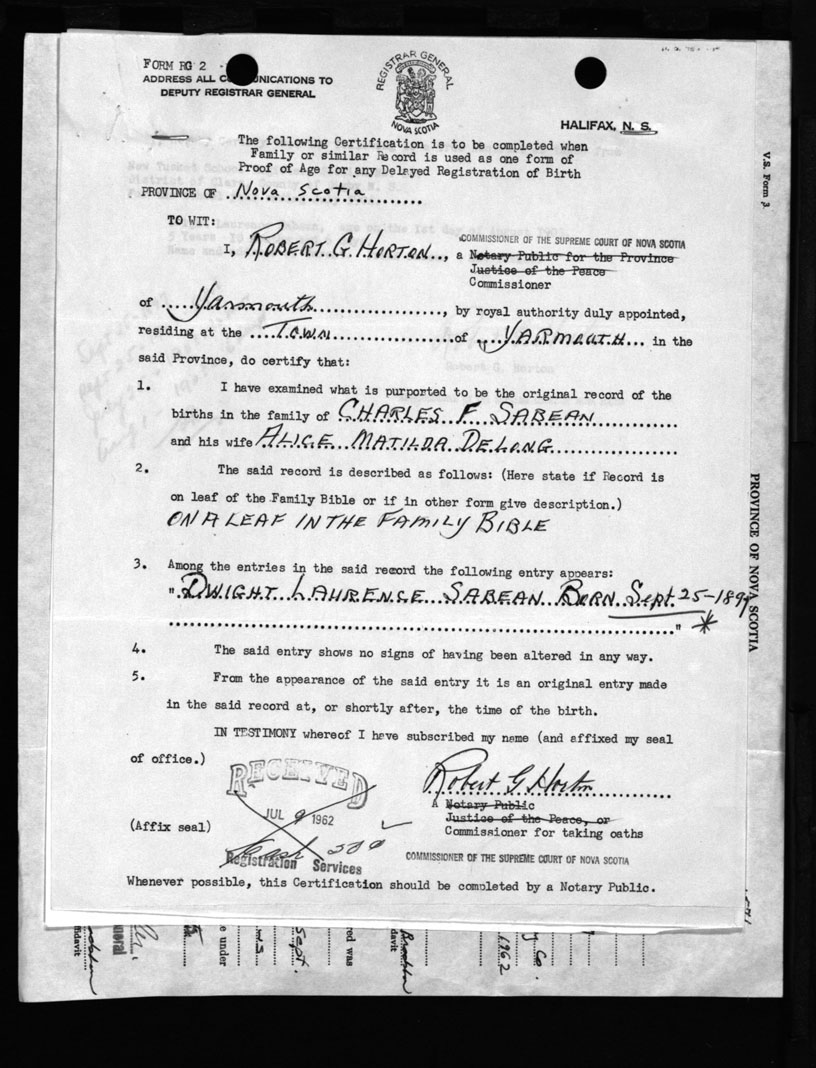 FORM RG 2
ADDRESS ALL COMMUNICATIONS TO
DEPUTY REGISTRAR GENERAL
REGISTRAR GENERAL
NOVA SCOTIA
HALIFAX, N. S.
The following Certification is to be completed when
Family or similar Record is used as one form of
Proof of Age for any Delayed Registration of Birth
PROVINCE OF Nova Scotia
TO WIT:
COMMISSIONER OF THE SUPREME COURT OF NOVA SCOTIA
I, ROBERT G. HORTON, a Notary Public for the Province
Justice of the Peace
Commissioner
of Yarmouth, by royal authority duly appointed,
residing at the TOWN of YARMOUTH in the
said Province, do certify that:
1. I have examined what is purported to be the original record of the
births in the family of CHARLES F SABEAN
and his wife ALICE MATILDA DELONG
2. The said record is described as follows: (Here state if Record is
on leaf of the Family Bible or if in other form give description.)
ON A LEAF IN THE FAMILY BIBLE
3. Among the entries in the said record the following entry appears:
"DWIGHT LAURENCE SABEAN BORN Sept. 25-1899
" *
4. The said entry shows no signs of having been altered in any way.
5. From the appearance of the said entry it is an original entry made
in the said record at, or shortly after, the time of the birth.
IN TESTIMONY whereof I have subscribed my name (and affixed my seal
of office.)
Robert G. Horton
A Notary Public
Justice of the Peace, or
(Affix seal) Commissioner for taking oaths
COMMISSIONER OF THE SUPREME COURT OF NOVA SCOTIA
RECEIVED
JUL 9 1962
Cash
Registration Services
Whenever possible, this Certification should be completed by a Notary Public.
V.S. Form 3
PROVINCE OF NOVA SCOTIA
Robert G. Horton
Sept.
1962